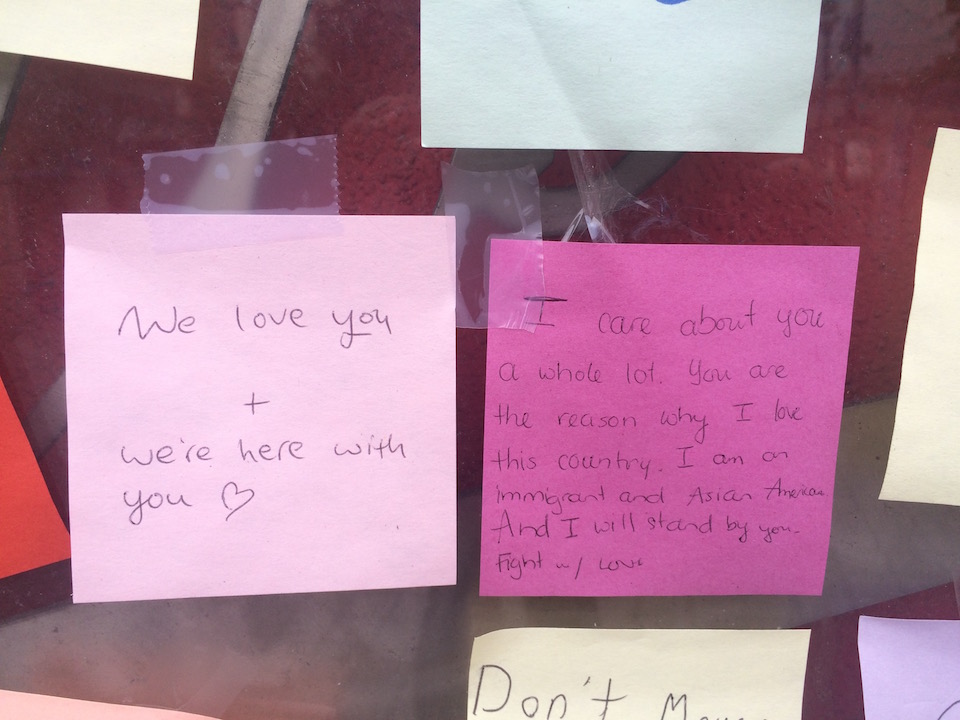 We love you
+
we're here with
you ♡
I care about you
a whole lot. You are
the reason why I love
this country. I am an
immigrant and Asian American
And I will stand by you.
Fight w/ Love
Don't